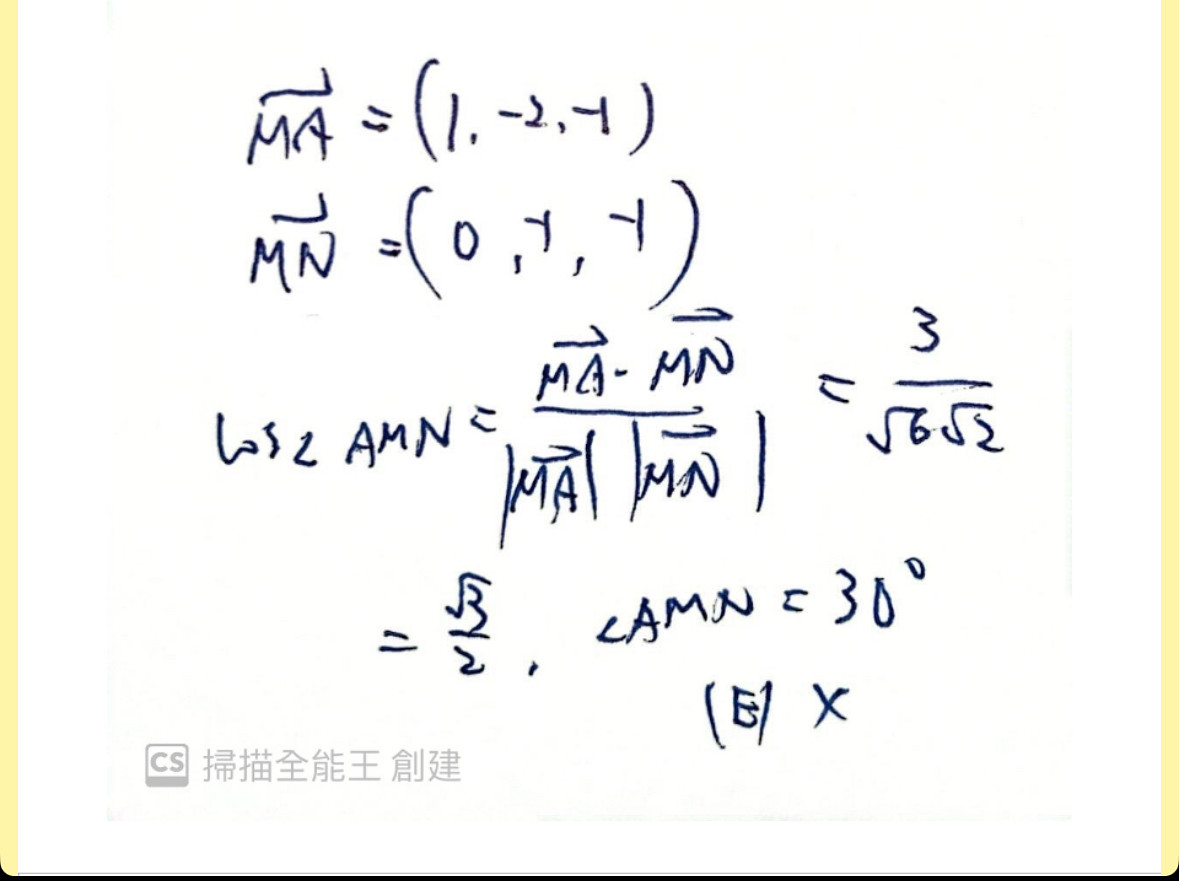 MA = (1, -2, -1)
MN = (0, -1, -1)
cos∠AMN = MA · MN / |MA| |MN| = 3 / √6√2
= √3 / 2 , ∠AMN = 30°
(E) ×
CS 掃描全能王 創建